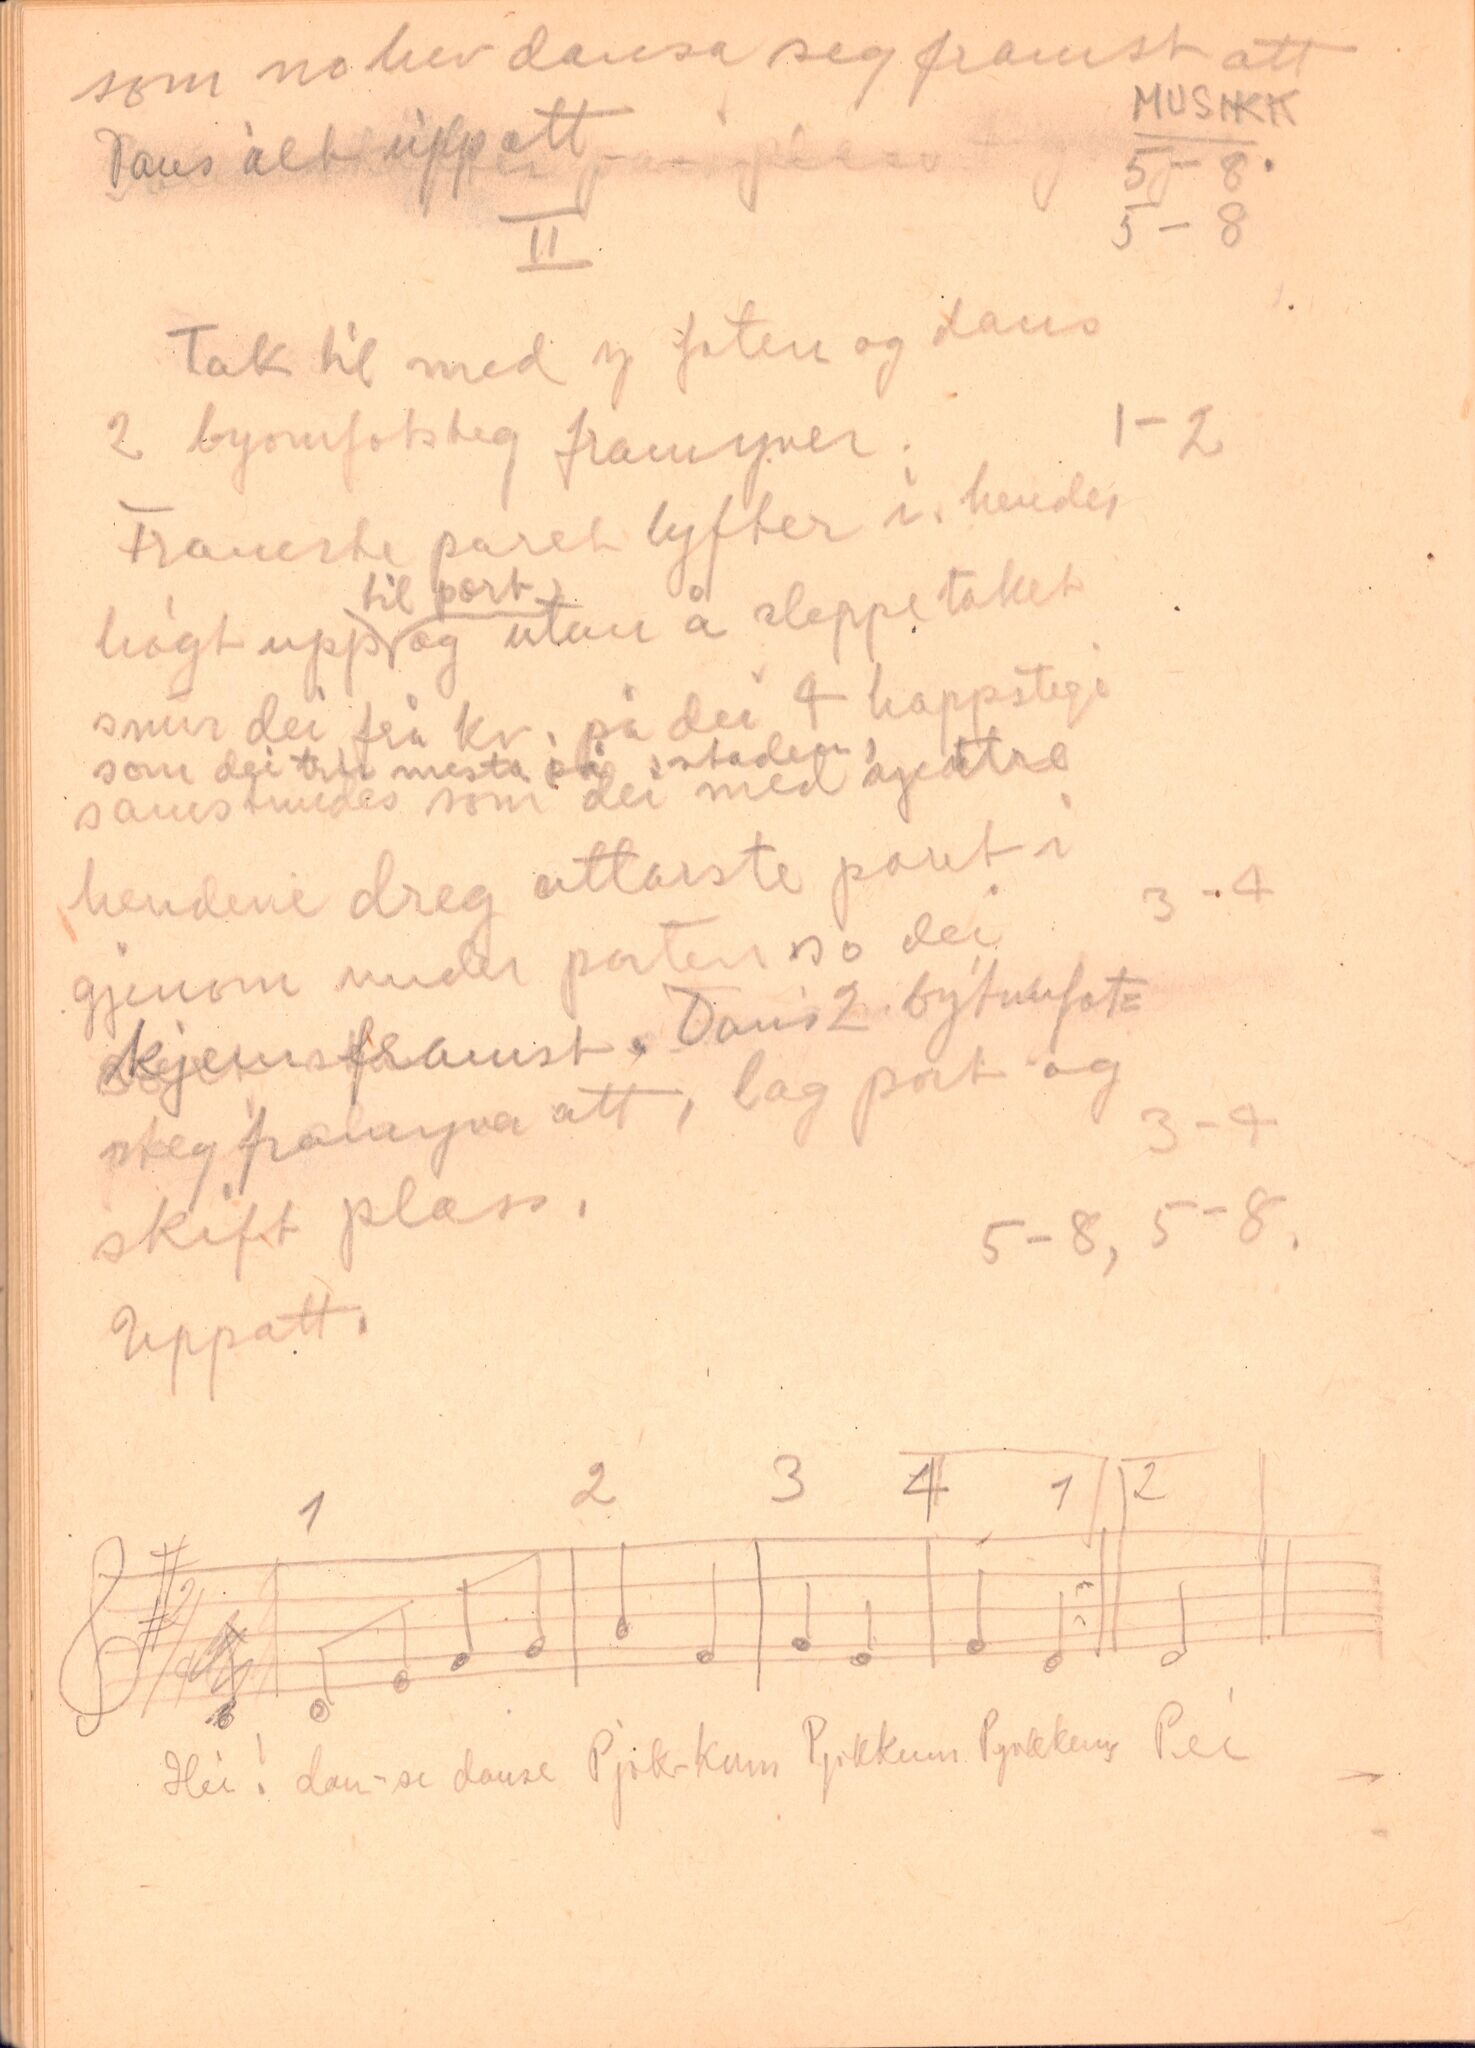 som no hev dansa seg framst att
MUSIKK
Dans alt uppatt
5-8.
5-8
II
Tak til med y foten og dans
2 byomfotsteg framyver. 1-2
Framste paret lyfter i. hendes
til port
høgt upp og utan å sleppe taket
snur dei frå kv. på dei 4 happstegi
som dei trør mesta på staden,
samstundes som dei med ytre
hendene dreg attarste paret i 3-4
gjenom under porten so dei
kjem framst. Dans 2 bytomfot=
steg framyver att, lag port og 3-4
skift plass. 5-8, 5-8.
Uppatt.
1 2 3 4 1 2
Hei! dan-se danse Pjök-kum Pjökkum Pjokkum Pei